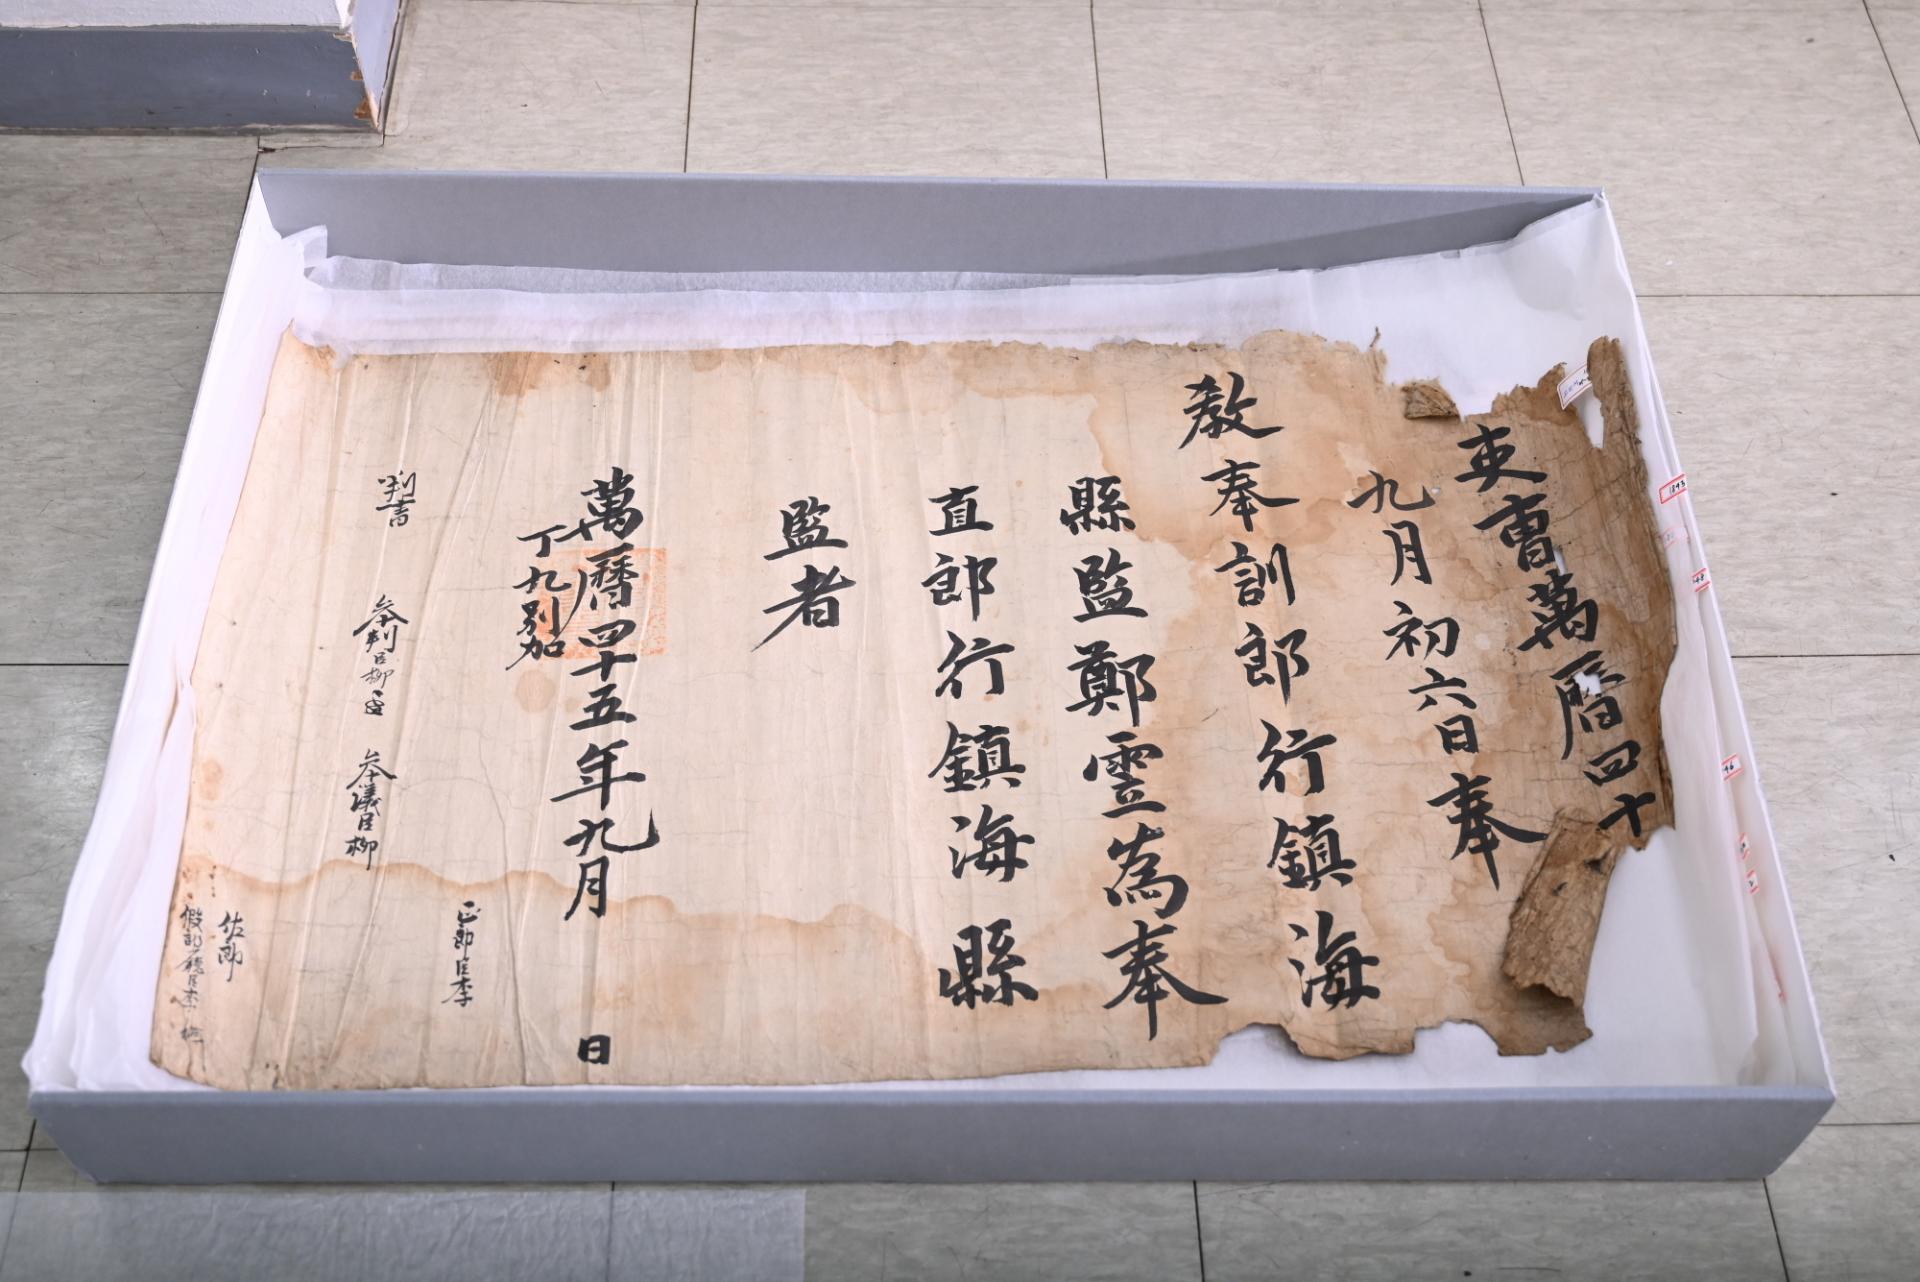 吏曹萬曆四十
九月初六日奉
教奉訓郎行鎮海
縣監鄭霊為奉
直郎行鎮海縣
監者
萬曆四十五年九月 日
丁九別加
判書
參判臣柳
參議臣柳
正郎臣李
佐郎